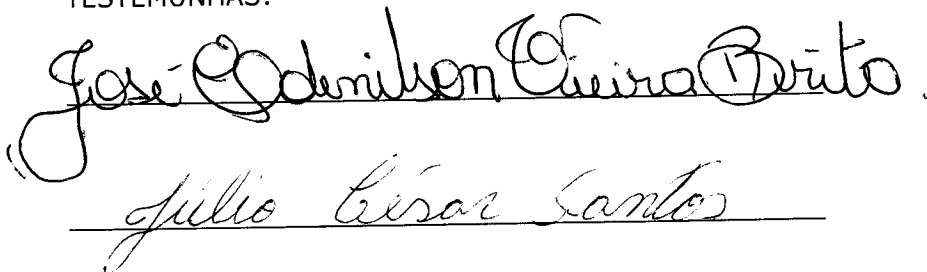 TESTEMUNHAS:
José Edenilson Vieira Brito
Júlio César Santos